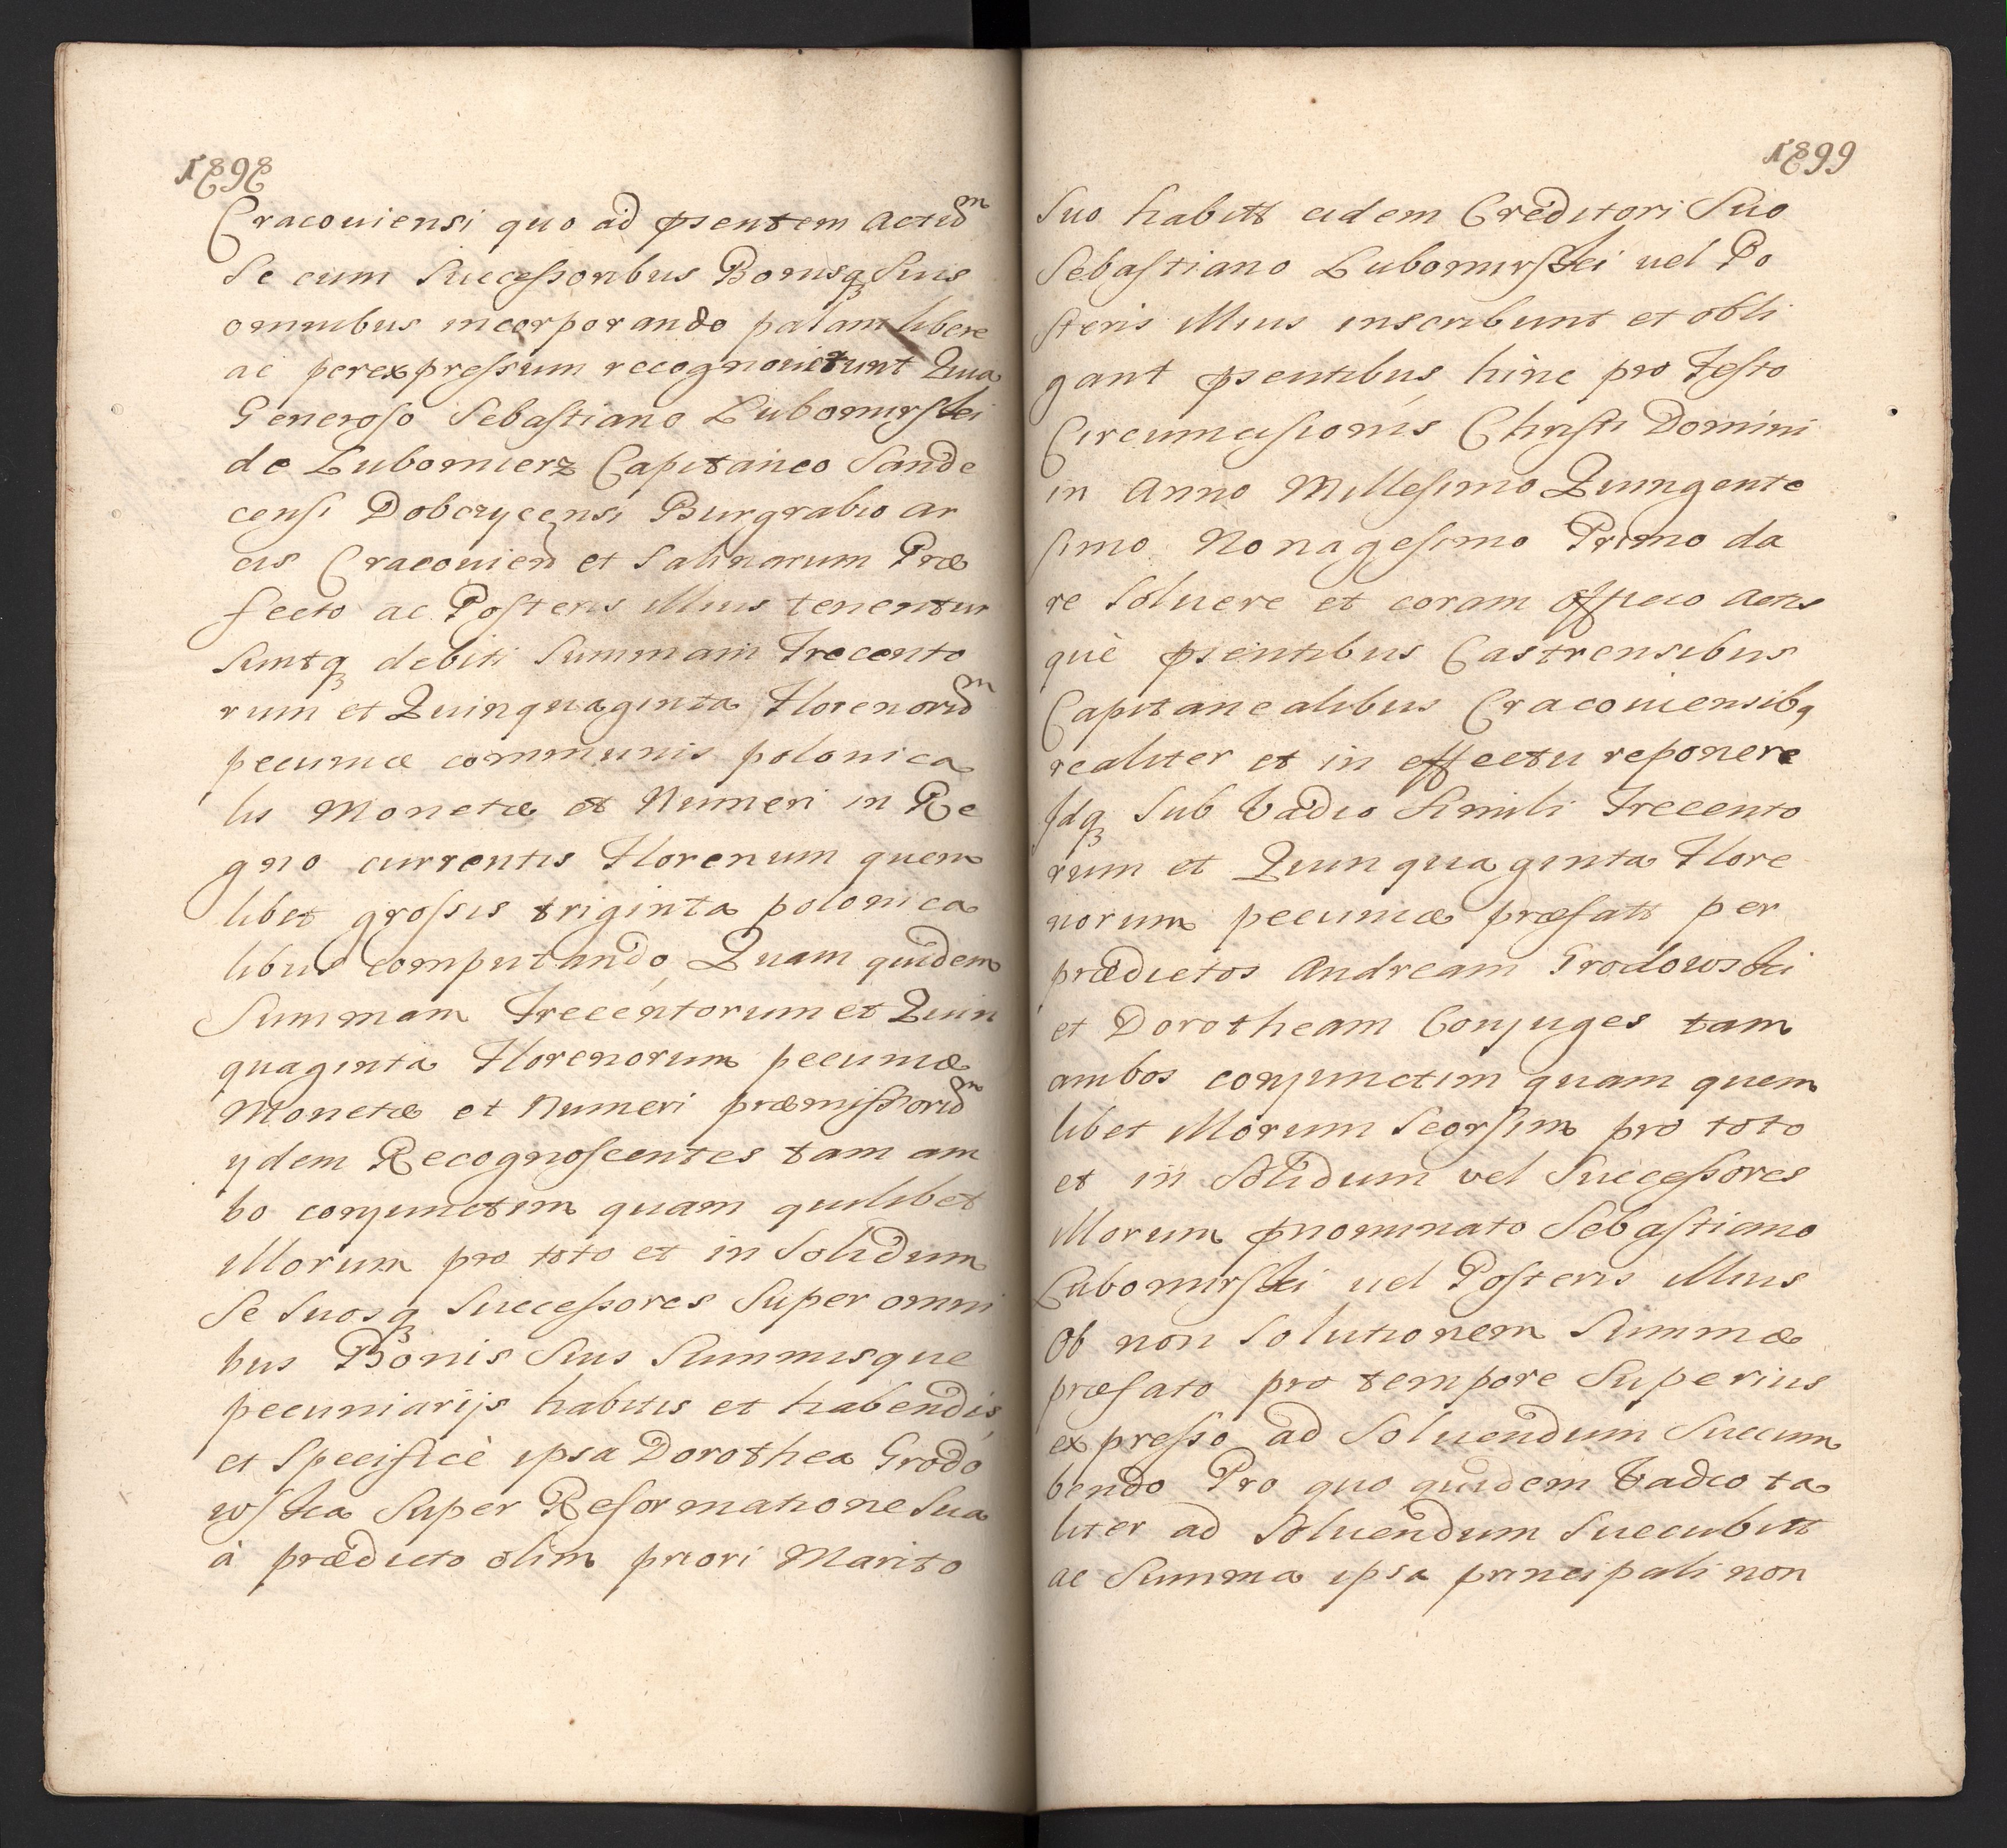 1898
Cracouiensi quo ad psentem actum
Se cum Successoribus Bonisq Suis
omnibus incorporando palam libere
ac per expressum recognouerunt Quia
Generoso Sebastiano Lubomirski
de Lubomierz Capitaneo Sande
censi Dobczycensi Burgrabio ar
cis Cracouien et Salinarum Præ
fecto ac Posteris illius tenentur
Suntq debiti Summam Trecento
rum et Quinquaginta Florenorum
pecuniæ communis polonica
lis Monetæ et Numeri in Re
gno currentis Florenum quem
libet grossis triginta polonica
libus computando, Quam quidem
Summam Trecentorum et Quin
quaginta Florenorum pecuniæ
Monetæ et Numeri præmissorum
ydem Recognoscentes tam am
bo conjunctim quam quilibet
illorum pro toto et in Solidum
Se Suosq Successores Super omni
bus Bonis Suis Summisque
pecuniarijs habitis et habendis,
et Specificè ipsa Dorothea Grodo
wska Super Reformatione Sua
à prædicto olim priori Marito
1899
Suo habitt eidem Creditori Suo
Sebastiano Lubomirski uel Po
steris illius inscribunt et obli
gant psentibus, hinc pro Festo
Circumcisionis Christi Domini
in Anno Millesimo Quingente
simo Nonagesimo Primo da
re Soluere et coram officio actis
què psentibus Castrensibus
Capitanealibus Cracouiensibq
realiter et in effectu reponere
Idq Sub Vadio Simili Trecento
rum et Quinquaginta Flore
norum pecuniæ præfatt per
prædictos Andream Grodowski
et Dorotheam Conjuges tam
ambos conjunctim quam quem
libet illorum Seorsim pro toto
et in Solidum vel Successores
illorum pnominato Sebastiano
Lubomirski uel Posteris illius
Ob non Solutionem Summæ
præfato pro tempore Superius
expresso ad Soluendum Succum
bendo Pro quo quidem Vadio ta
liter ad Soluendum Succubitt
ac Summa ipsa principali non